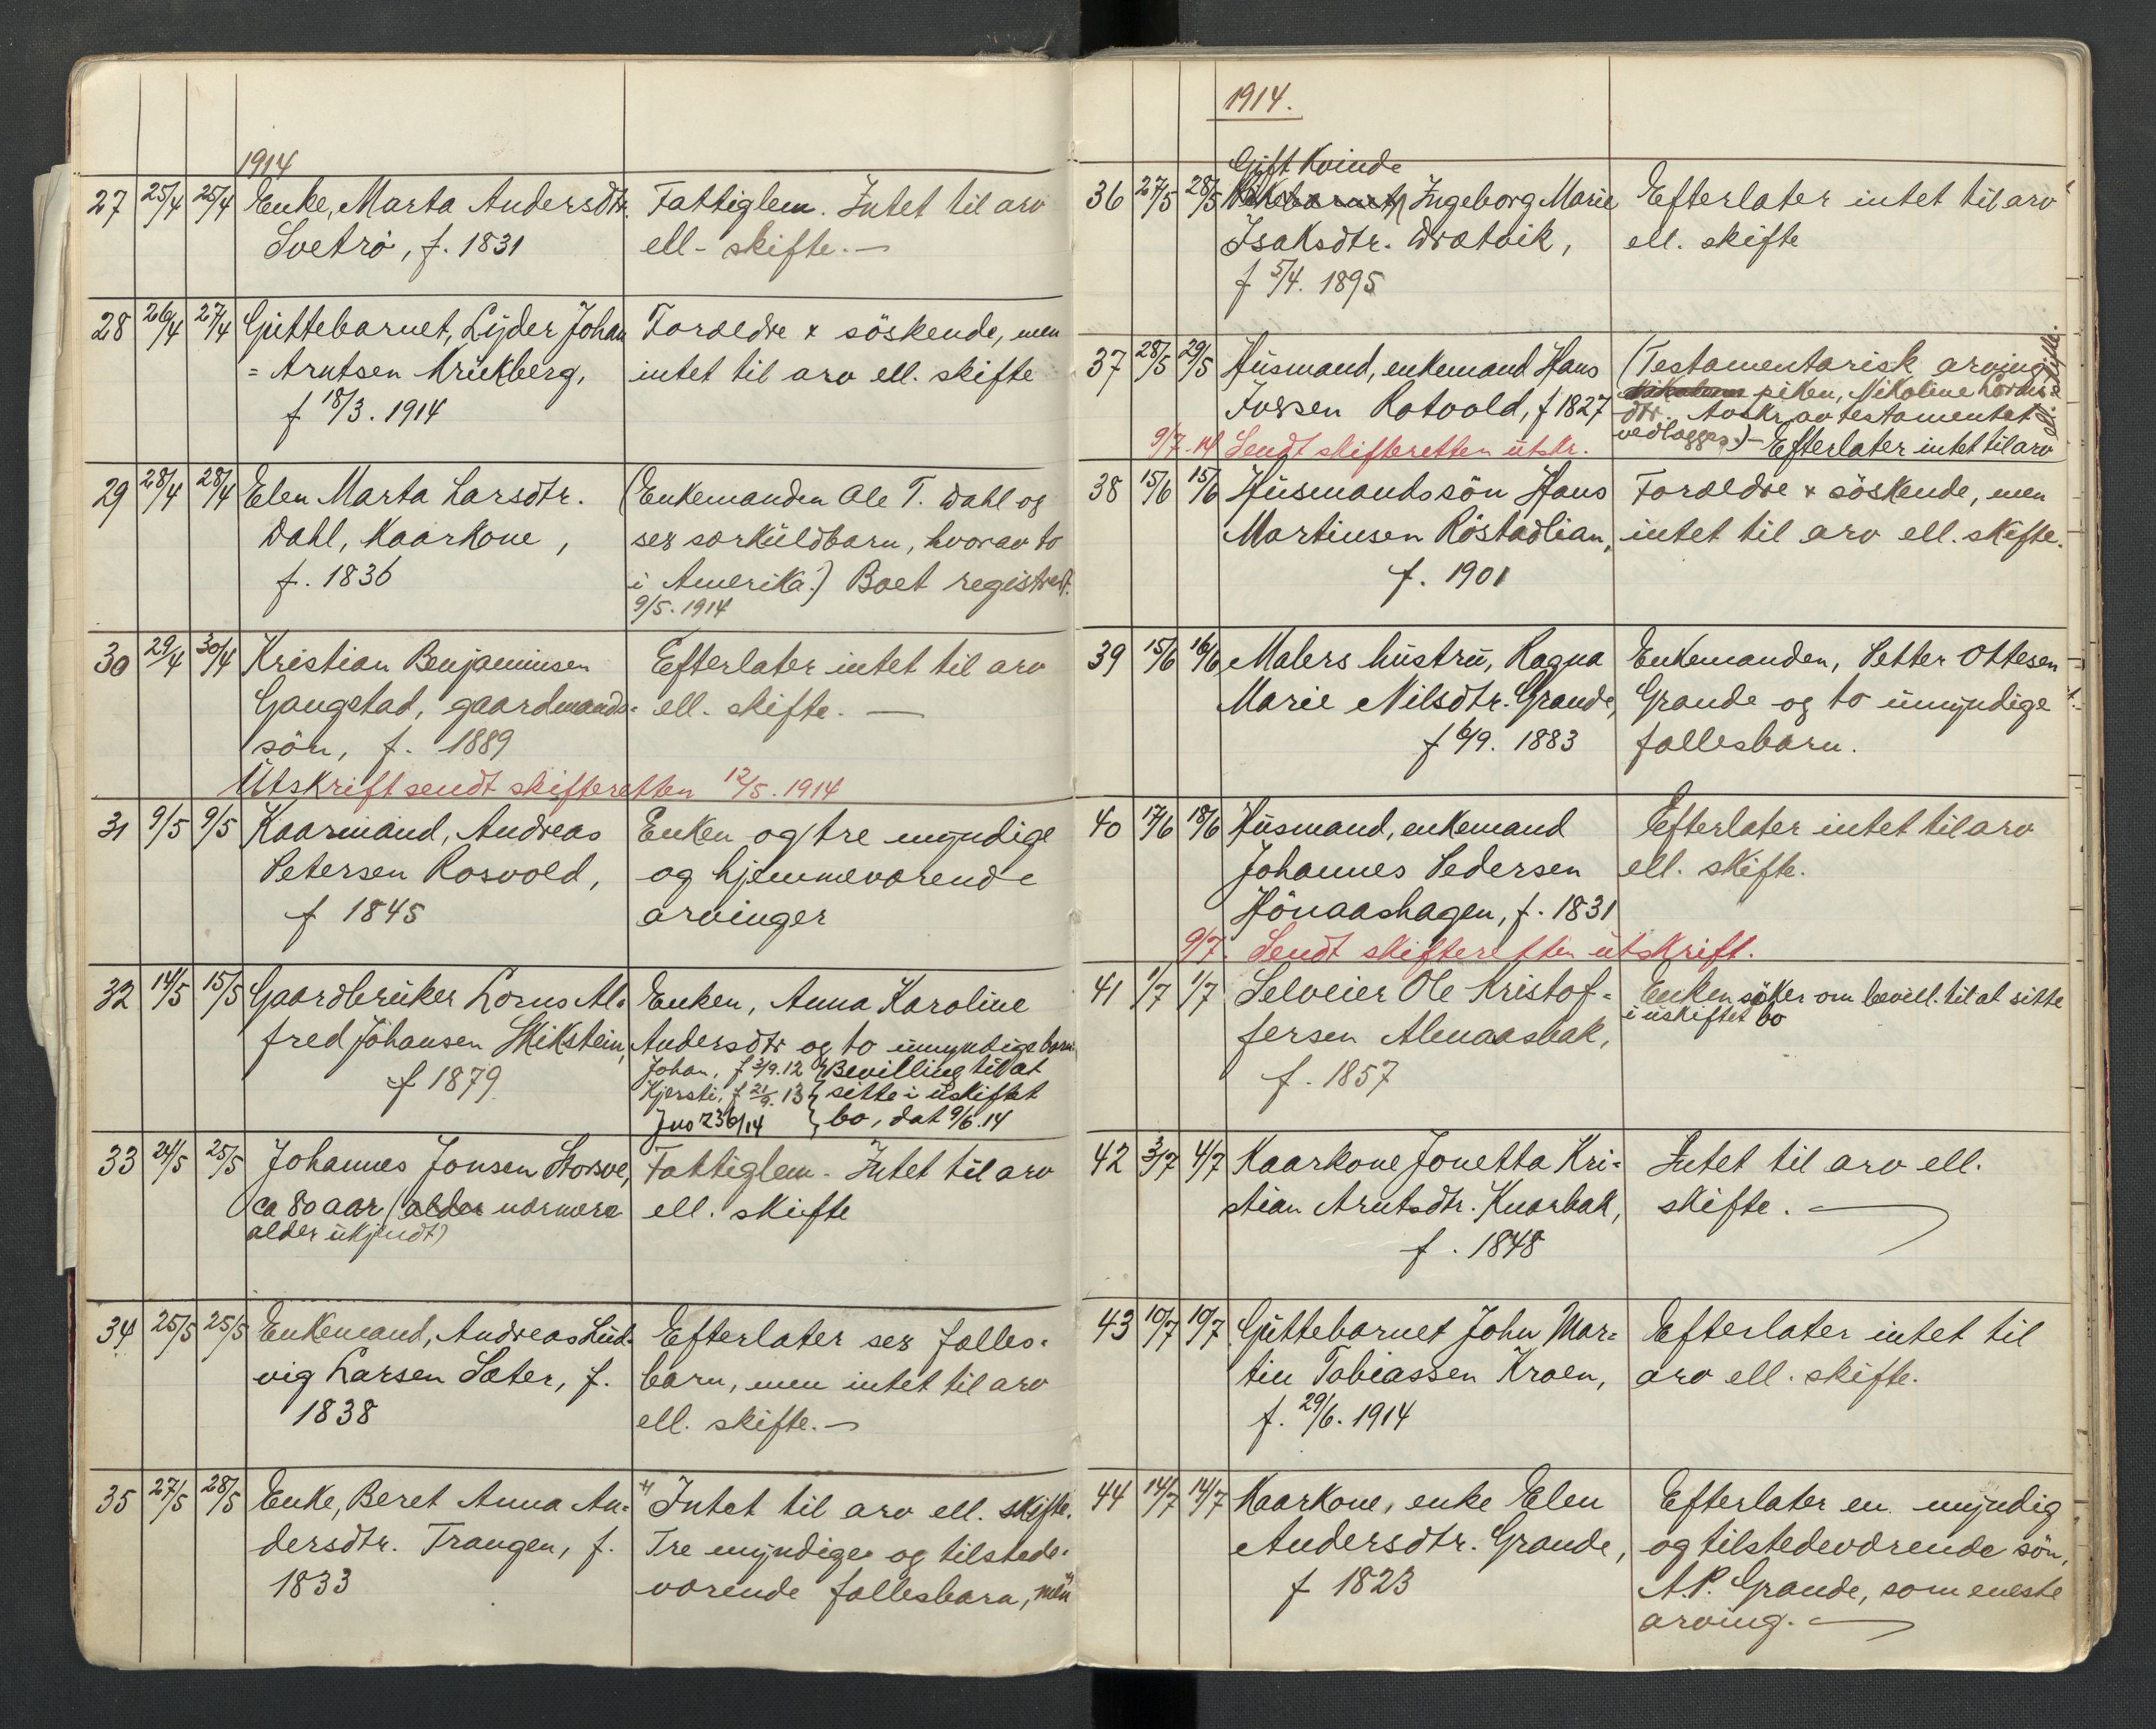 1914
27 25/4 25/4 Enke, Marta Andersdtr. Fattiglem. Intet til arv
Svetrö, f. 1831 ell. skifte. —
28 26/4 27/4 Guttebarnet, Lyder Johan Forældre & söskende, men
= Arntsen Krickberg, intet til arv ell. skifte
f 18/3. 1914
29 28/4 28/4 Elen Marta Larsdtr. (Enkemanden Ole T. Dahl og
Dahl, Kaarkone, sex særkuldbarn, hvorav to
f. 1836 i Amerika.) Boet registrert.
9/5. 1914
30 29/4 30/4 Kristian Benjaminsen Efterlater intet til arv
Gangstad, gaardmands= ell. skifte. —
sön, f. 1889
Utskrift sendt skifteretten 12/5. 1914
31 9/5 9/5 Kaarmand, Andreas Enken og tre myndige
Petersen Rosvold, og hjemmeværende
f 1845 arvinger
32 14/5 15/5 Gaardbruker Lorns Al= Enken, Anna Karoline
fred Johansen Skikstein, Andersdtr og to umyndige barn.
f 1879 Johan, f 3/9.12 } Bevilling til at
Kjersti, f 21/9. 13 } sitte i uskiftet
Jno 236/14 } bo, dat 9/6.14
33 24/5 25/5 Johannes Jonsen Storsve, Fattiglem. Intet til arv
ca 80 aar (alder nærmere ell. skifte
alder ukjendt)
34 25/5 25/5 Enkemand, Andreas Lud= Efterlater sex fælles=
vig Larsen Sæter, f. barn, men intet til arv
1838 ell. skifte. —
35 27/5 28/5 Enke, Beret Anna An= Intet til arv ell. skifte.
dersdtr. Trangen, f. Tre myndige og tilstede=
1833 værende fællesbarn, men
1914.
Gift Kvinde
36 27/5 28/5 Ingeborg Marie Efterlater intet til arv
Isaksdtr. Dratvik, ell. skifte
f 5/4. 1895
37 28/5 29/5 Husmand, enkemand Hans (Testamentarisk arving
Iversen Rotvold, f 1827 piken, Nikoline Lorns=
dtr. Avskr. av testamentet
vedlægges.) — Efterlater intet til arv
ell. skifte.
9/7-14 Sendt skifteretten utskr.
38 15/6 15/6 Husmandssön Hans Forældre & söskende, men
Martinsen Röstadlian, intet til arv ell. skifte.
f. 1901
39 15/6 16/6 Malers hustru, Ragna Enkemanden, Petter Ottesen
Marie Nilsdtr. Grande, Grande og to umyndige
f 6/9. 1883 fællesbarn.
40 17/6 18/6 Husmand, enkemand Efterlater intet til arv
Johannes Pedersen ell. skifte.
Hönaashagen, f. 1831
9/7. Sendt skifteretten utskrift.
41 1/7 1/7 Selveier Ole Kristof= Enken söker om bevill. til at sitte
i uskiftet bo
fersen Almaasbak,
f. 1857
42 3/7 4/7 Kaarkone Jonetta Kri= Intet til arv ell.
stian Arntsdtr. Kvarbak, skifte. —
f. 1848
43 10/7 10/7 Guttebarnet John Mar= Efterlater intet til
tin Tobiassen Kraen, arv ell. skifte.
f. 29/6. 1914
44 14/7 14/7 Kaarkone, enke Elen Efterlater en myndig
Andersdtr. Grande, og tilstedeværende sön,
f 1823 A.P. Grande, som eneste
arving. —